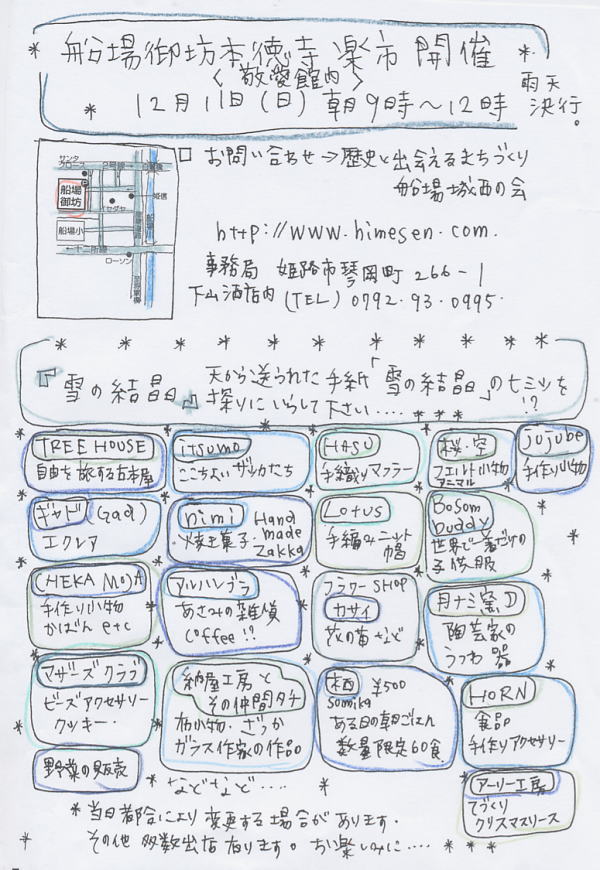 船場御坊本徳寺楽市開催
〈敬愛館内〉
雨天決行。
12月11日(日)朝9時〜12時
お問い合わせ⇒歴史と出会えるまちづくり
船場城西の会
http://www.himesen.com.
事務局 姫路市琴岡町266-1
下山酒店内(TEL)0792.93.0995.
サンタクロース
2号線
白鷺橋
船場御坊
イセダヤ
姫信
船場川
船場小
一十二所線
ローソン
『雪の結晶』
天から送られた手紙「雪の結晶」のヒミツを
探りにいらして下さい....!?
TREE HOUSE
自由を旅する古本屋
itsumo
ここちよいザッカたち
HASU
手織りマフラー
桜・空
フエルト小物
アニマル
jujube
手作り小物
ギャド(gad)
エクレア
nimi Hand made Zakka
焼き菓子
Lotus
手編みニット帽
Bosom buddy
世界で一着だけの
子供服
CHEKA MOJA
手作り小物
かばん etc
アルハンブラ
あさみの雑貨
Coffee!?
フラワーSHOP
カサイ
花の苗など
月ナミ窯
陶芸家の
うつわ 器
マザーズクラブ
ビーズアクセサリー
クッキー.
納屋工房と
その仲間タチ
布小物・ざっか
ガラス作家の作品
栖 ¥500
somika
ある日の朝ごはん
数量限定60食
HORN
食品
手作りアクセサリー
野菜の販売
などなど....
アーリー工房
てづくり
クリスマスリース
*当日都合により変更する場合があります.
その他多数出店有ります。お楽しみに....